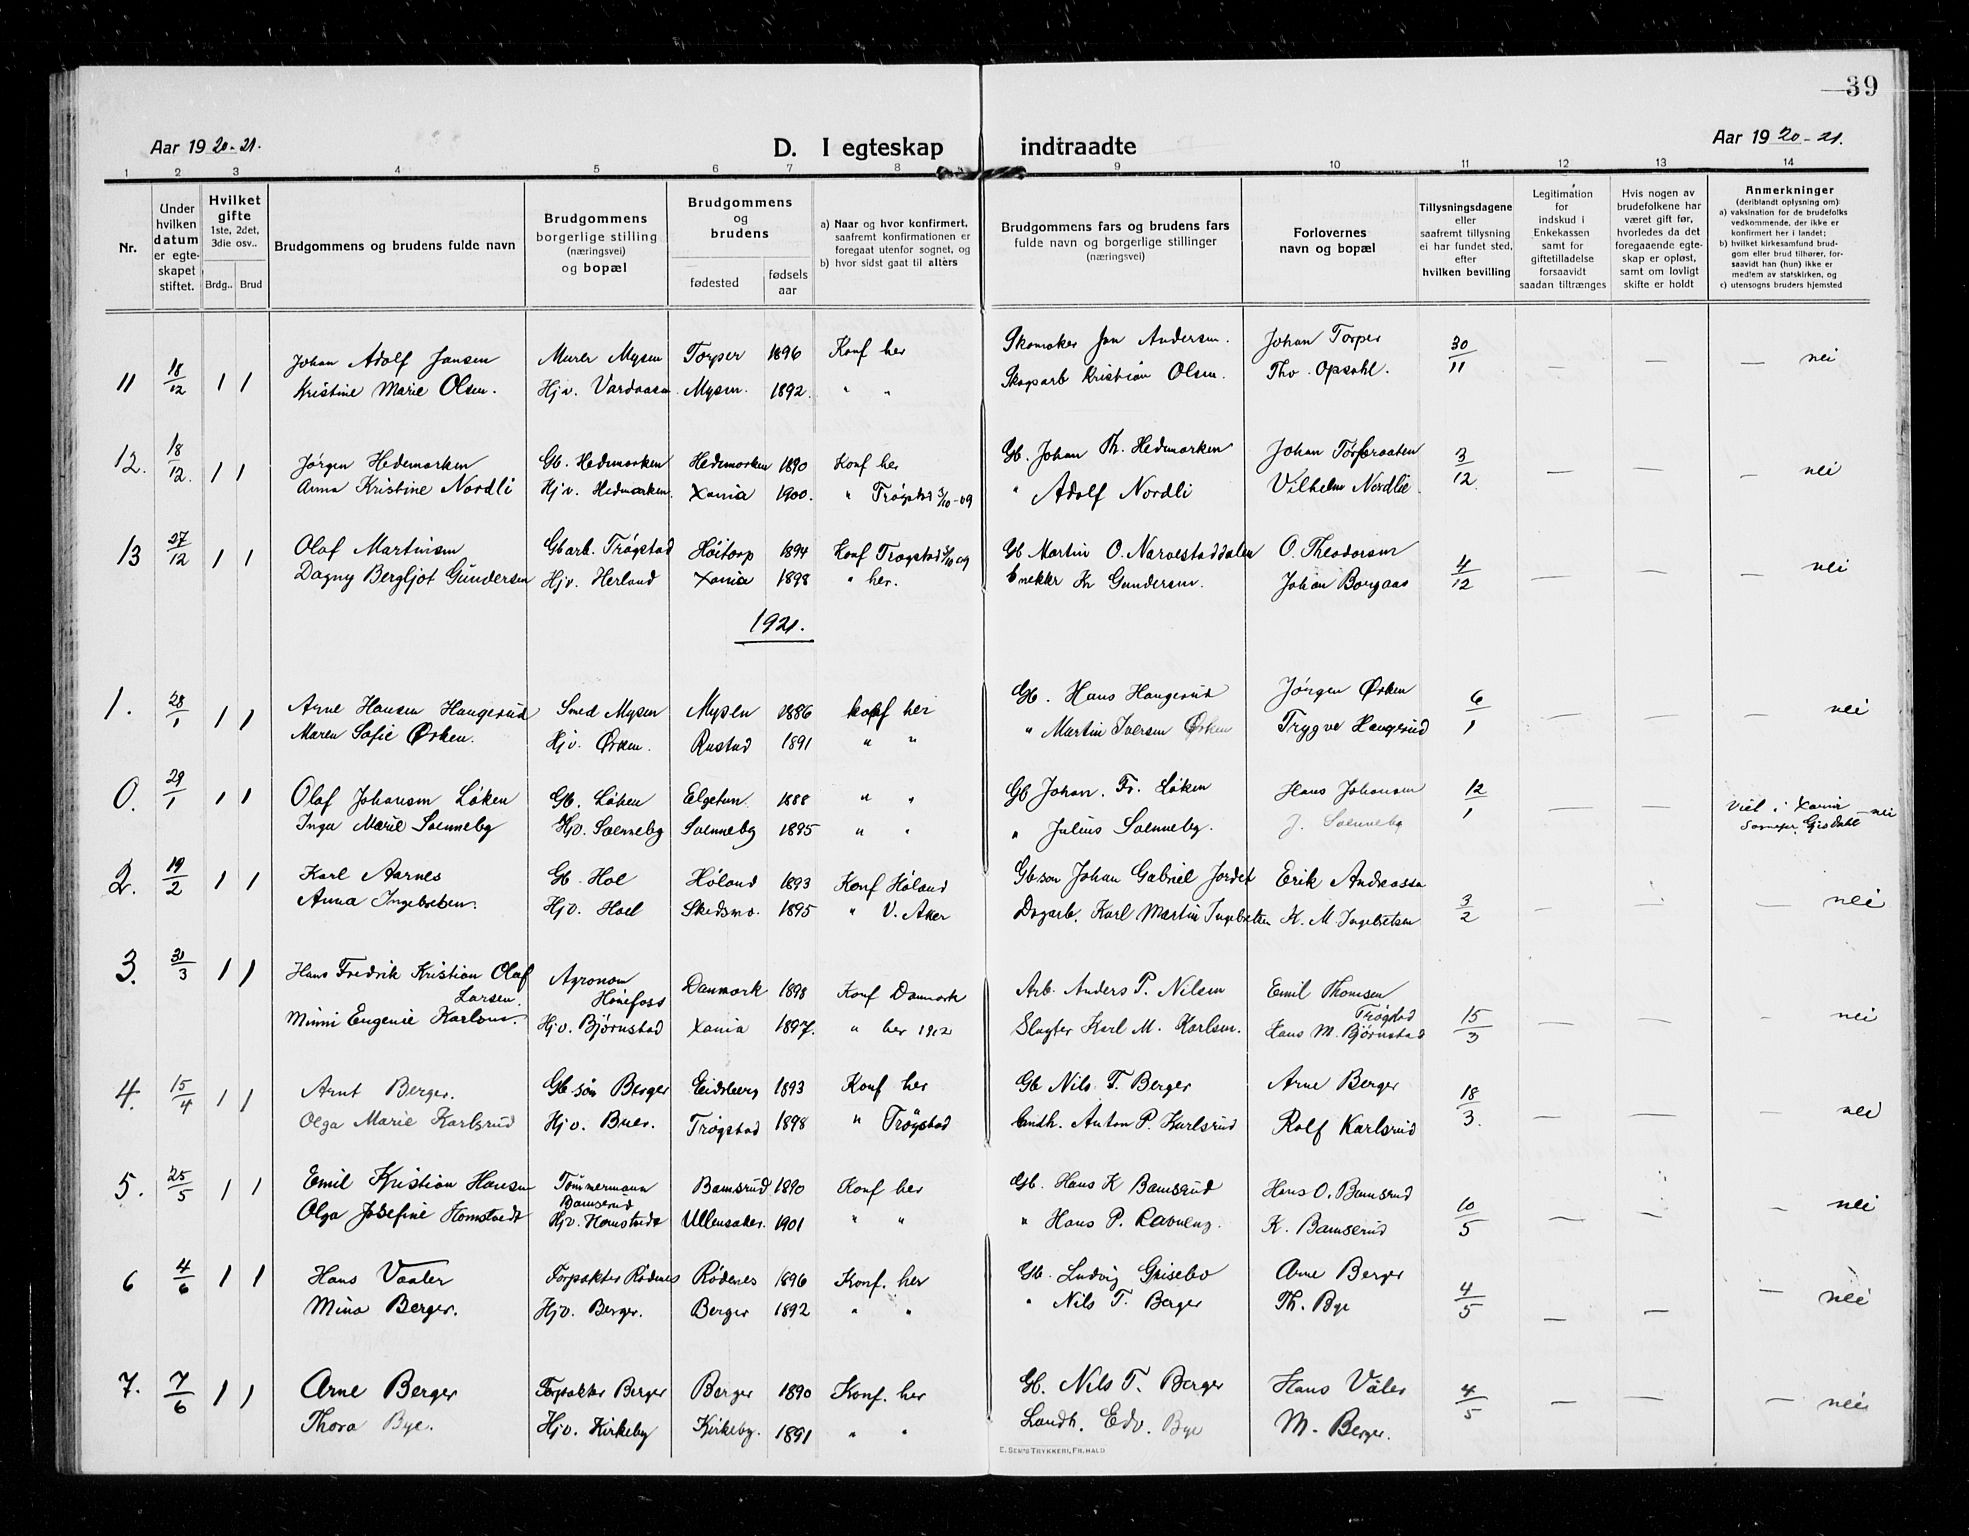 39
Aar 1920-21. D. I egteskap indtraadte Aar 1920-21.
1 2 3 4 5 6 7 8 9 10 11 12 13 14
Nr.
Under hvilken datum er egteskapet stiftet.
Hvilket gifte 1ste, 2det, 3die osv..
Brdg.. Brud
Brudgommens og brudens fulde navn
Brudgommens borgerlige stilling (næringsvei) og bopæl
Brudgommens og brudens
fødested
fødsels aar
a) Naar og hvor konfirmert, saafremt konfirmationen er foregaat utenfor sognet, og
b) hvor sidst gaat til alters
Brudgommens fars og brudens fars fulde navn og borgerlige stillinger (næringsvei)
Forlovernes navn og bopæl
Tillysningsdagene eller saafremt tillysning ei har fundet sted, efter hvilken bevilling
Legitimation for indskud i Enkekassen samt for giftetilladelse forsaavidt saadan tiltrænges
Hvis nogen av brudefolkene har været gift før, hvorledes da det foregaaende egteskap er opløst, samt om lovligt skifte er holdt
Anmerkninger (deriblandt oplysning om:
a) vaksination for de brudefolks vedkommende, der ikke er konfirmert her i landet;
b) hvilket kirkesamfund brudgom eller brud tilhører, forsaavidt han (hun) ikke er medlem av statskirken, og
c) utensogns bruders hjemsted
11 18/12 1 1 Johan Adolf Jansen Murer Mysen Torper 1896 Konf her Skomaker Jon Andersen. Johan Torper 30/11 — — — nei
Kristine Marie Olsen. Hjv. Vardaasen Mysen. 1892. " " Skogarb Kristian Olsen. Th. Opsahl.
12. 18/12. 1 1 Jørgen Hedemarken Gb. Hedemarken Hedemarken 1890 Konf her Gb. Johan Th. Hedmarken Johan 3/12. — — — nei
Anna Kristine Nordli Hjv. Hedmarken. Xania 1900. " Trøgstad 3/10-09 " Adolf Nordli Vilhelm Nordlie.
13 27/12 1 1 Olaf Martinsen Gbarb. Trøgstad Høitorp 1894 Konf Trøgstad Gb Martin O. Narvestaddalen O. Theodorsen 4/12 — — — nei
Dagny Bergljot Gundersen Hjv. Herland Xania 1898 " her. Gundersen. Johan Borgaas
1921.
1. 28/1 1 1 Arne Hansen Haugerud Smed Mysen Mysen 1886 konf her Gb. Hans Haugerud Jørgen Ørken 6/1 — — — nei
Maren Sofie Ørken. Hjv. Ørken. Rustad 1891 " " " Martin Iversen Ørken Trygve Haugerud
0. 29/1 1 1 Olaf Johansen Løken Gb. Løken Elgetun. 1888 " " Gb Johan. Fr. Løken Hans Johansen 12/1 — — Viet i Xania — nei
Inga Marie Solnneby Hjv. 1895 " " " Julius J.
2. 19/2 1 1 Karl Aarnes Gb. Hol Høland 1893 Konf Høland Gbsøn Johan Gabriel Jordet Erik 3/2 — — — nei
Anna Ingebretsen. Hjv. Hoel Skedsmo. 1895 " V. Aker Dagarb. Karl Martin Ingebretsen K. M. Ingebretsen
3. 30/3 1 1 Hans Fredrik Kristian Olaf Larsen. Agronom Hønefoss Danmark 1898 Konf Danmark Arb. Anders P. Nilsen Emil Thomsen Trøgstad 15/3 — — - nei
Minni Eugenie Karlsen. Hjv. Bjørnstad Xania 1897. " her 1912 Slagter Karl M. Karlsen. Hans M. Bjørnstad
4. 15/4 1 1 Arnt Berger. Gb.søn Berger Eidsberg 1893 Konf her Gb Nils T. Berger Arne Berger 18/3. — — — nei
Olga Marie Karlsrud Hjv. Buer. Trøgstad 1898 " Trøgstad Landh. Anton P. Karlsrud Rolf Karlsrud
5. 25/5 1 1 Emil Kristian Hansen Tømmermann Bamserud Bamsrud 1890 Konf her Gb. Hans K Bamsrud Hans O. Bamsrud 10/5 — — — nei
Olga Josefine Homstvedt Hjv. Homstvedt Ullensaker. 1901 " " " Hans P. K. Bamserud
6 4/6 1 1 Hans Vaaler Forpakter Rødenes Rødenes 1896 Konf. her Gb. Ludvig Grisebo Arne Berger 4/5 — — — nei
Mina Berger. Hjv. Berger. Berger 1892 " " " Nils T. Berger Th. Bye
7. 7/6 1 1 Arne Berger Forpakter Berger Berger 1890 Konf. her Gb. Nils T. Berger Hans Våler 4/5 — — — nei
Thora Bye. Hjv. Kirkeby Kirkeby. 1891 " " Landh. Edv. Bye M. Berger.
E. SEM'S TRYKKERI, FR.HALD